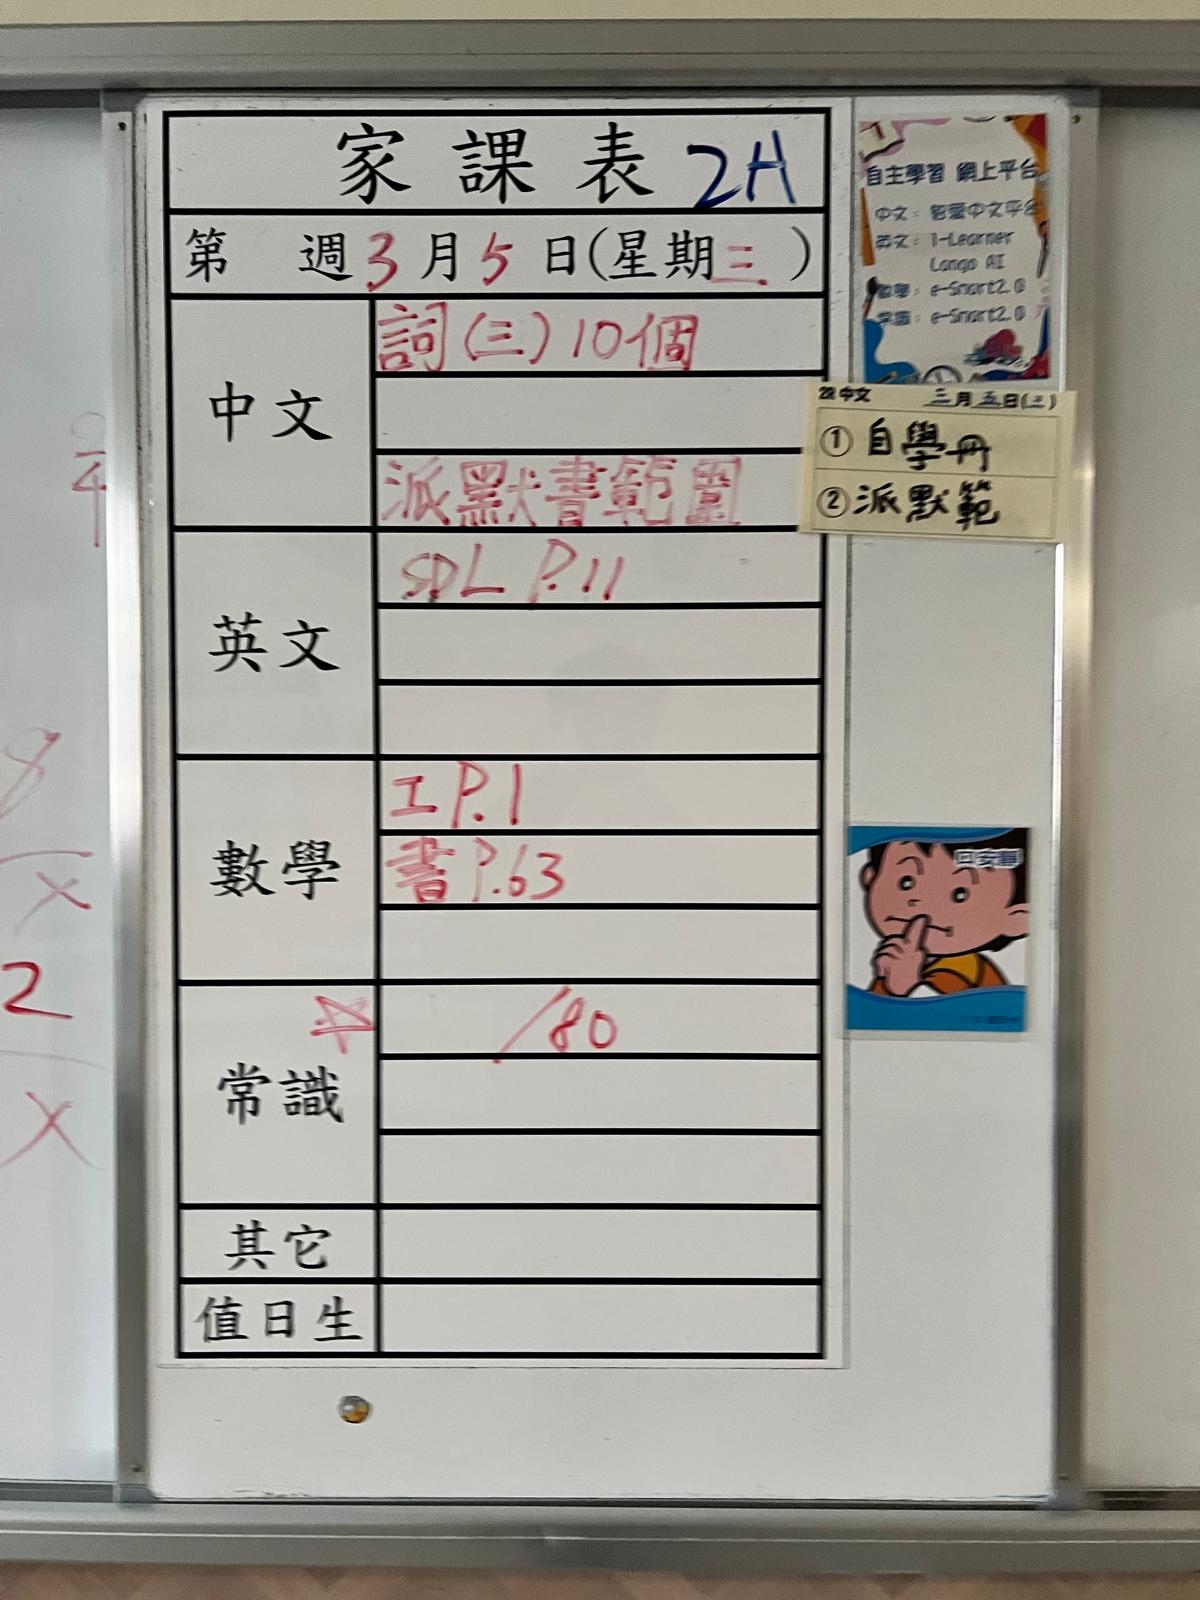 家課表 2H
第 週3月5日(星期三)
中文
詞(三)10個
派默書範圍
英文
SDL P.11
數學
工P.1
書P.63
常識
☆
/80
其它
值日生
自主學習 網上平台
中文：
英文：i-Learner
Lango AI
數學：e-Smart2.0
常識：e-Smart2.0
2R 中文 三月五日(三)
① 自學冊
② 派默範
口安靜
8
x
2
x